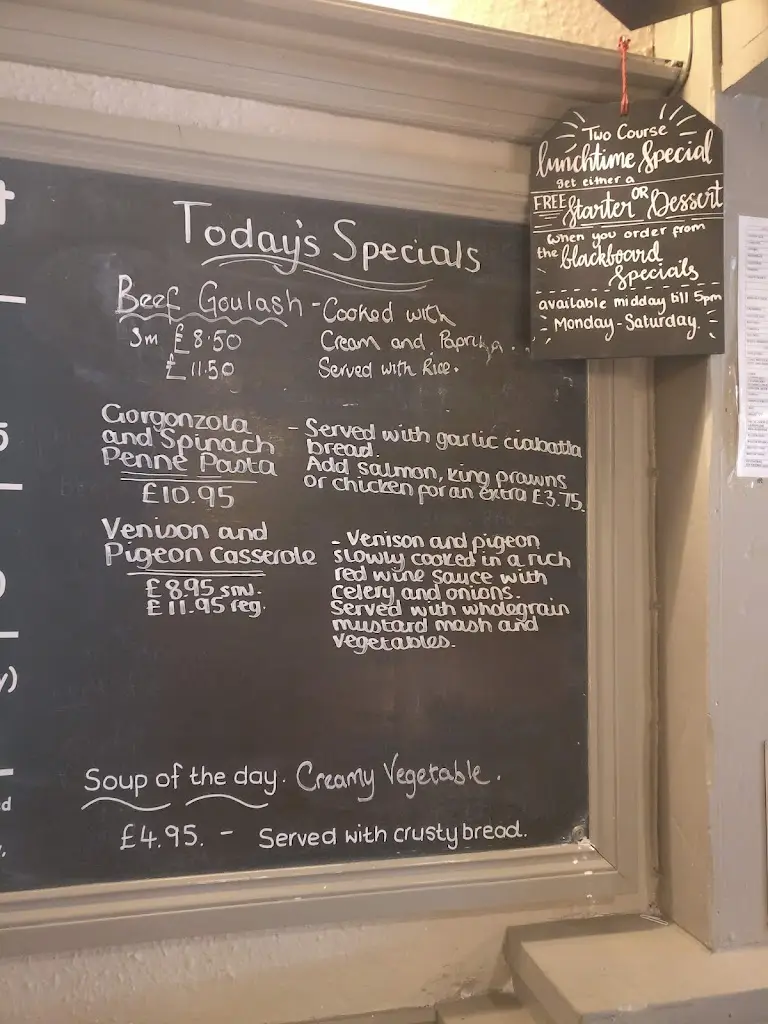 Today's Specials
Beef Goulash - Cooked with
Sm £8.50 Cream and Paprika.
£11.50 Served with Rice.
Gorgonzola
and Spinach
Penne Pasta
£10.95
- Served with garlic ciabatta
bread.
Add salmon, king prawns
or chicken for an extra £3.75.
Venison and
Pigeon Casserole
£8.95 sml.
£11.95 reg.
- Venison and pigeon
slowly cooked in a rich
red wine sauce with
celery and onions.
Served with wholegrain
mustard mash and
vegetables.
Soup of the day. Creamy Vegetable.
£4.95. - Served with crusty bread.
Two Course
lunchtime Special
get either a
FREE Starter OR Dessert
when you order from
the blackboard
Specials
available midday till 5pm
Monday - Saturday.